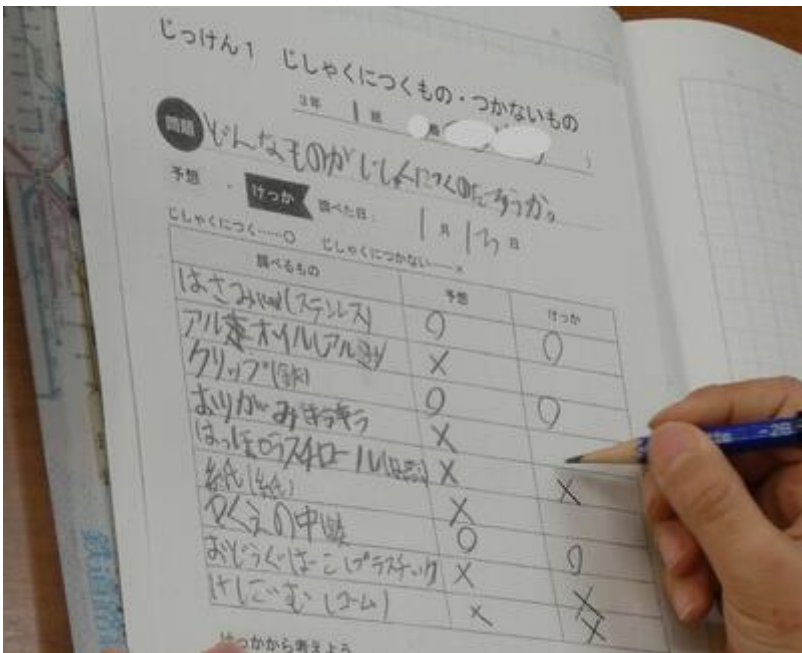 じっけん1 じしゃくにつくもの・つかないもの
3年 1 組
問題 どんなものがじしゃくにつくのだろうか。
予想 ・ けっか 調べた日: 1 月 13 日
じしゃくにつく……○ じしゃくにつかない……×
調べるもの 予想 けっか
はさみ (ステンレス) ○ ○
アルミホイル(アルミ) ×
クリップ(鉄) ○ ○
おりがみ ×
はっぽうスチロール × ×
紙(紙) ×
つくえの中 ○ ○
おどうぐばこ(プラスチック) × ×
けしごむ(ゴム) × ×
けっかから考えよう